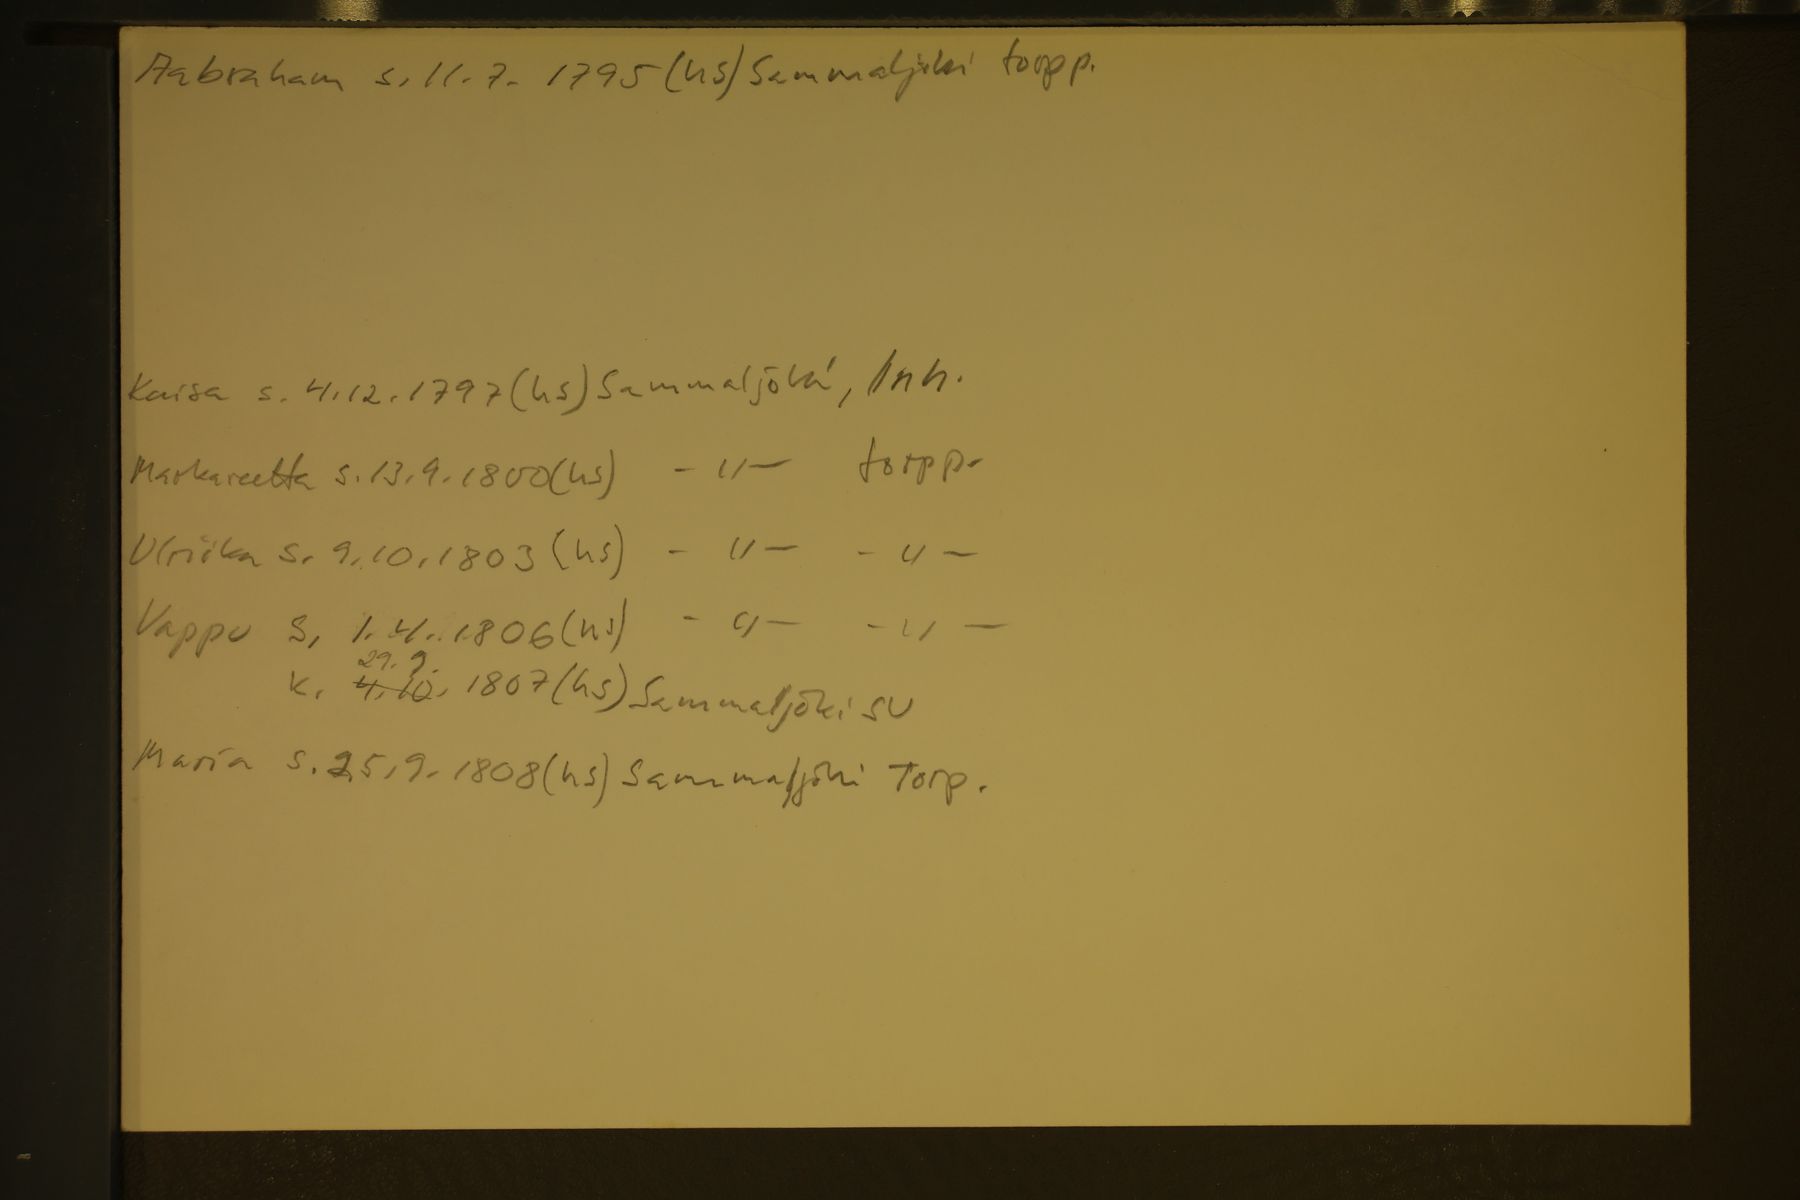 Aabraham s. 11.7. 1795 (hs) Sammaljoki torpp.
Kaisa s. 4.12.1797 (hs) Sammaljoki, Inh.
Markareetta s. 13.9.1800 (hs) - " - torpp.
Ulriika s. 9.10.1803 (hs) - " - - " -
Vappu s, 1.4.1806 (hs) - " - - " -
29.9.
k. 4.10. 1807 (hs) Sammaljoki SU
Maria s. 25.9. 1808 (hs) Sammaljoki Torp.